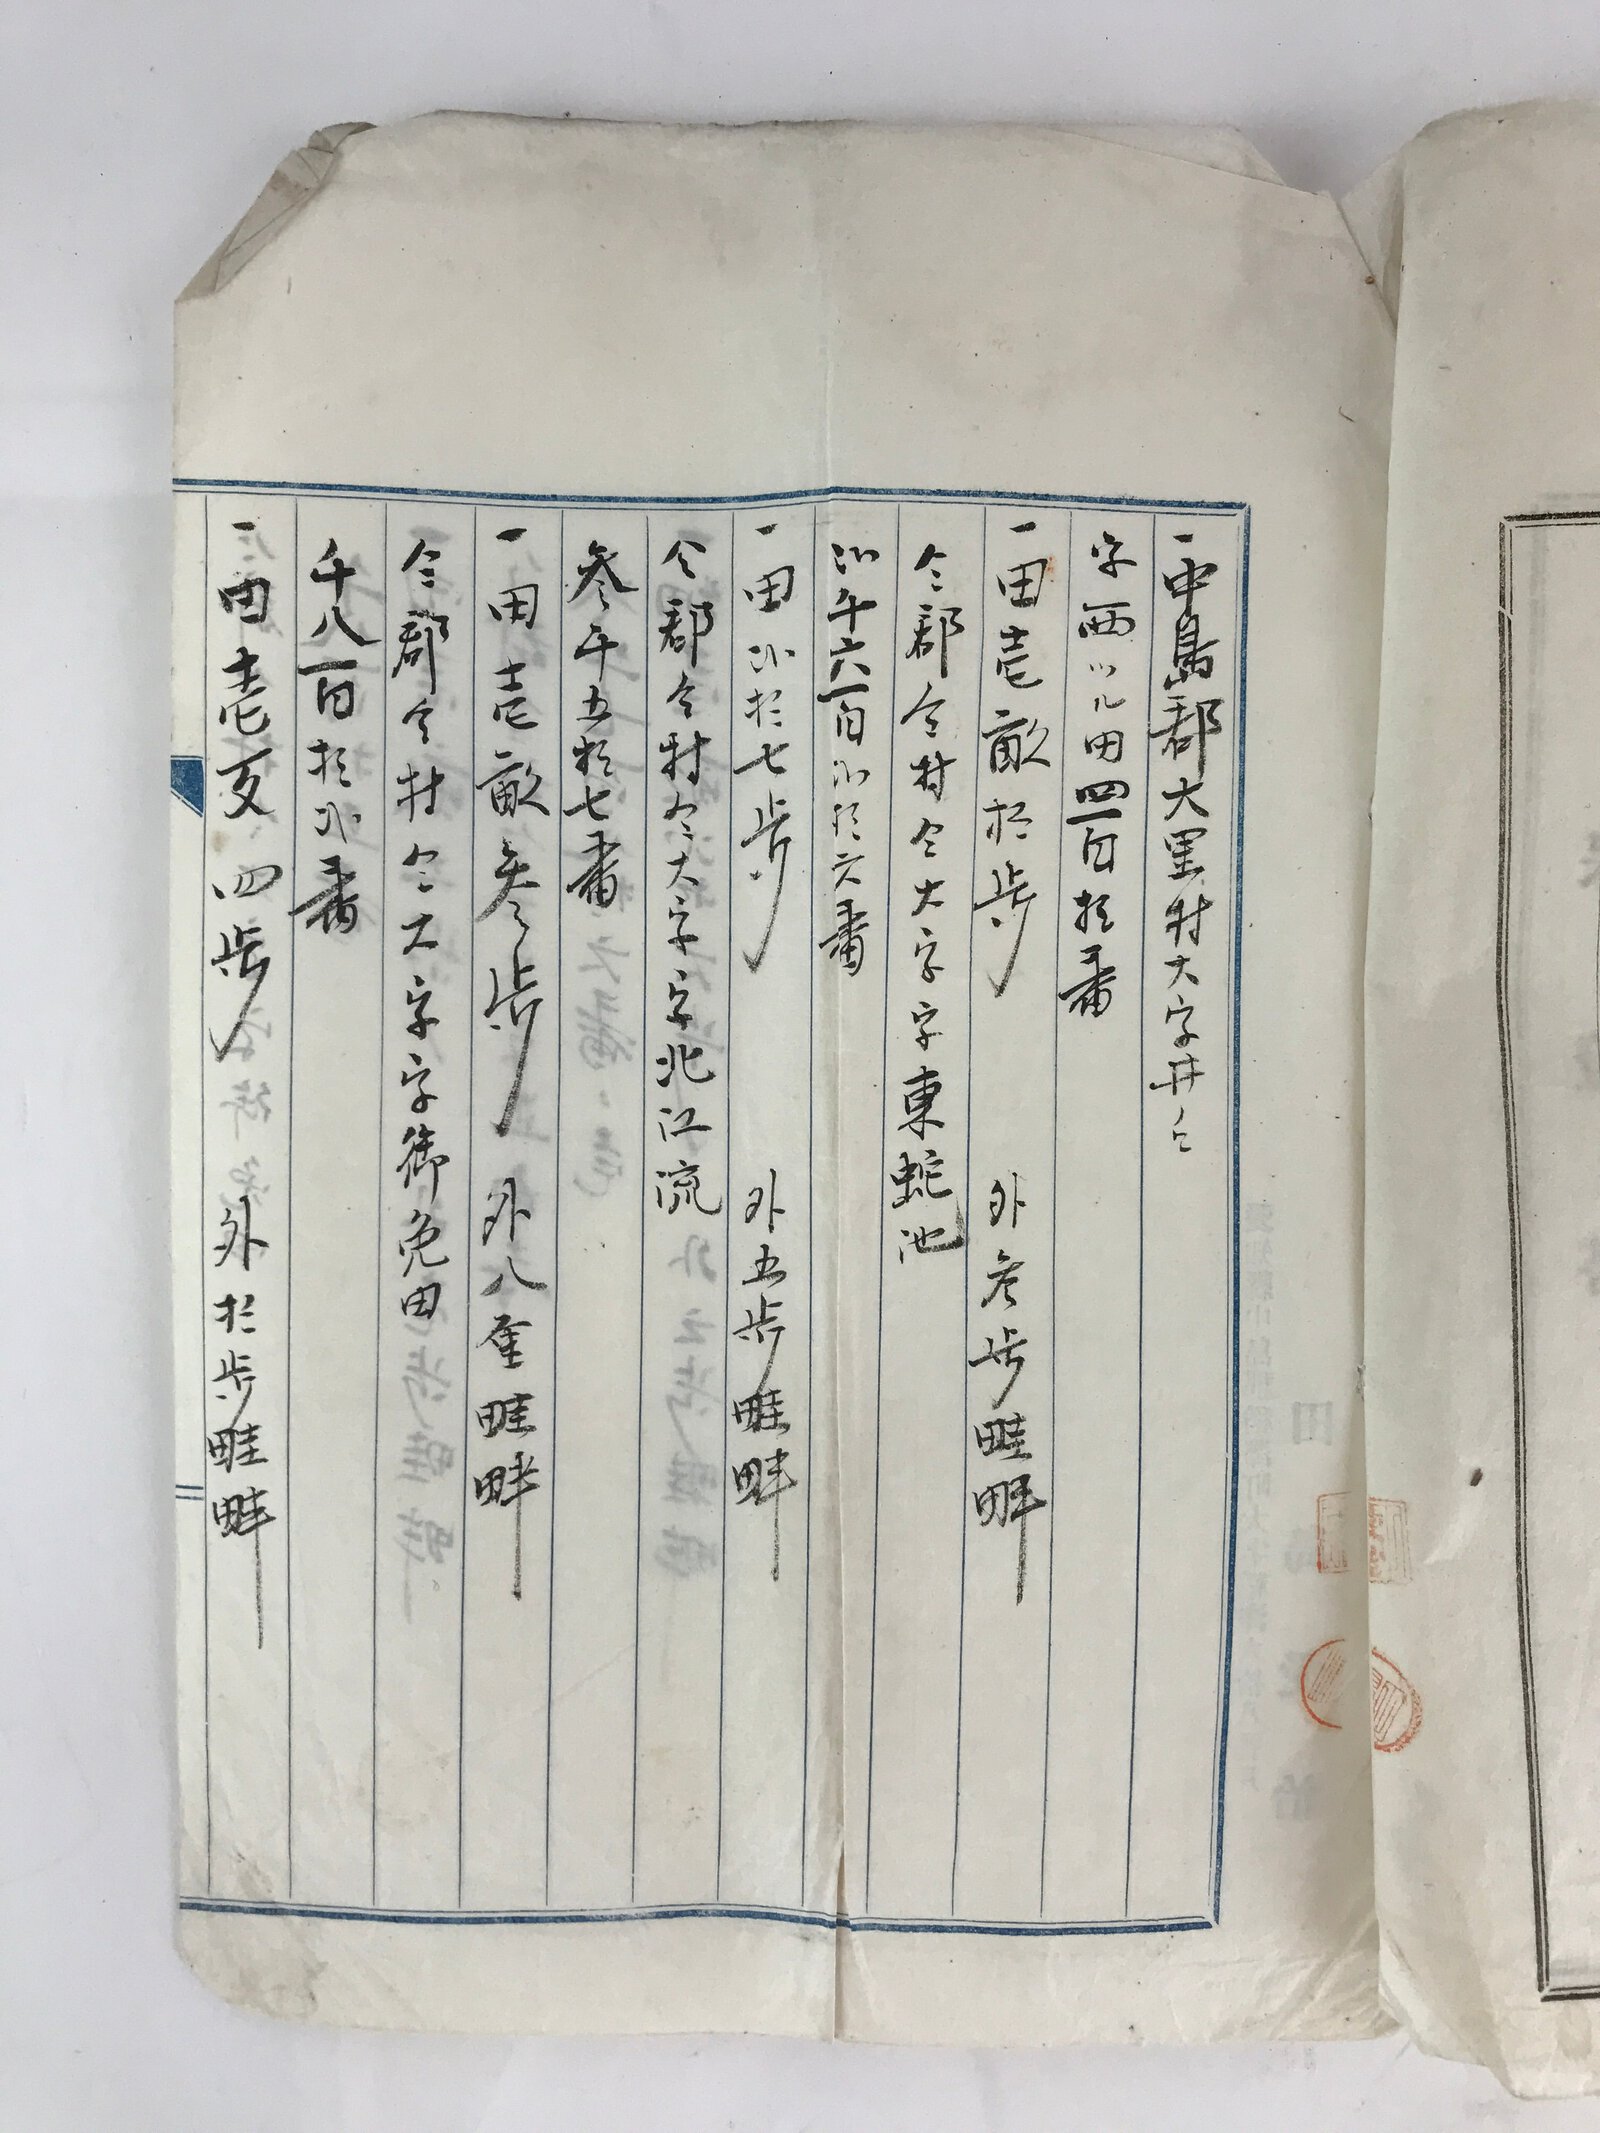 一中島郡大里村大字井之
字西ツル田四百拾番
一田壱畝拾歩 外参歩畦畔
仝郡仝村仝大字字東蛇池
弐千六百弐拾六番
一田弐拾七歩 外五歩畦畔
仝郡仝村仝大字字北江流
参千五拾七番
一田壱畝参歩 外八歩畦畔
仝郡仝村仝大字字御免田
千八百拾弐番
一田壱反四歩 外拾歩畦畔